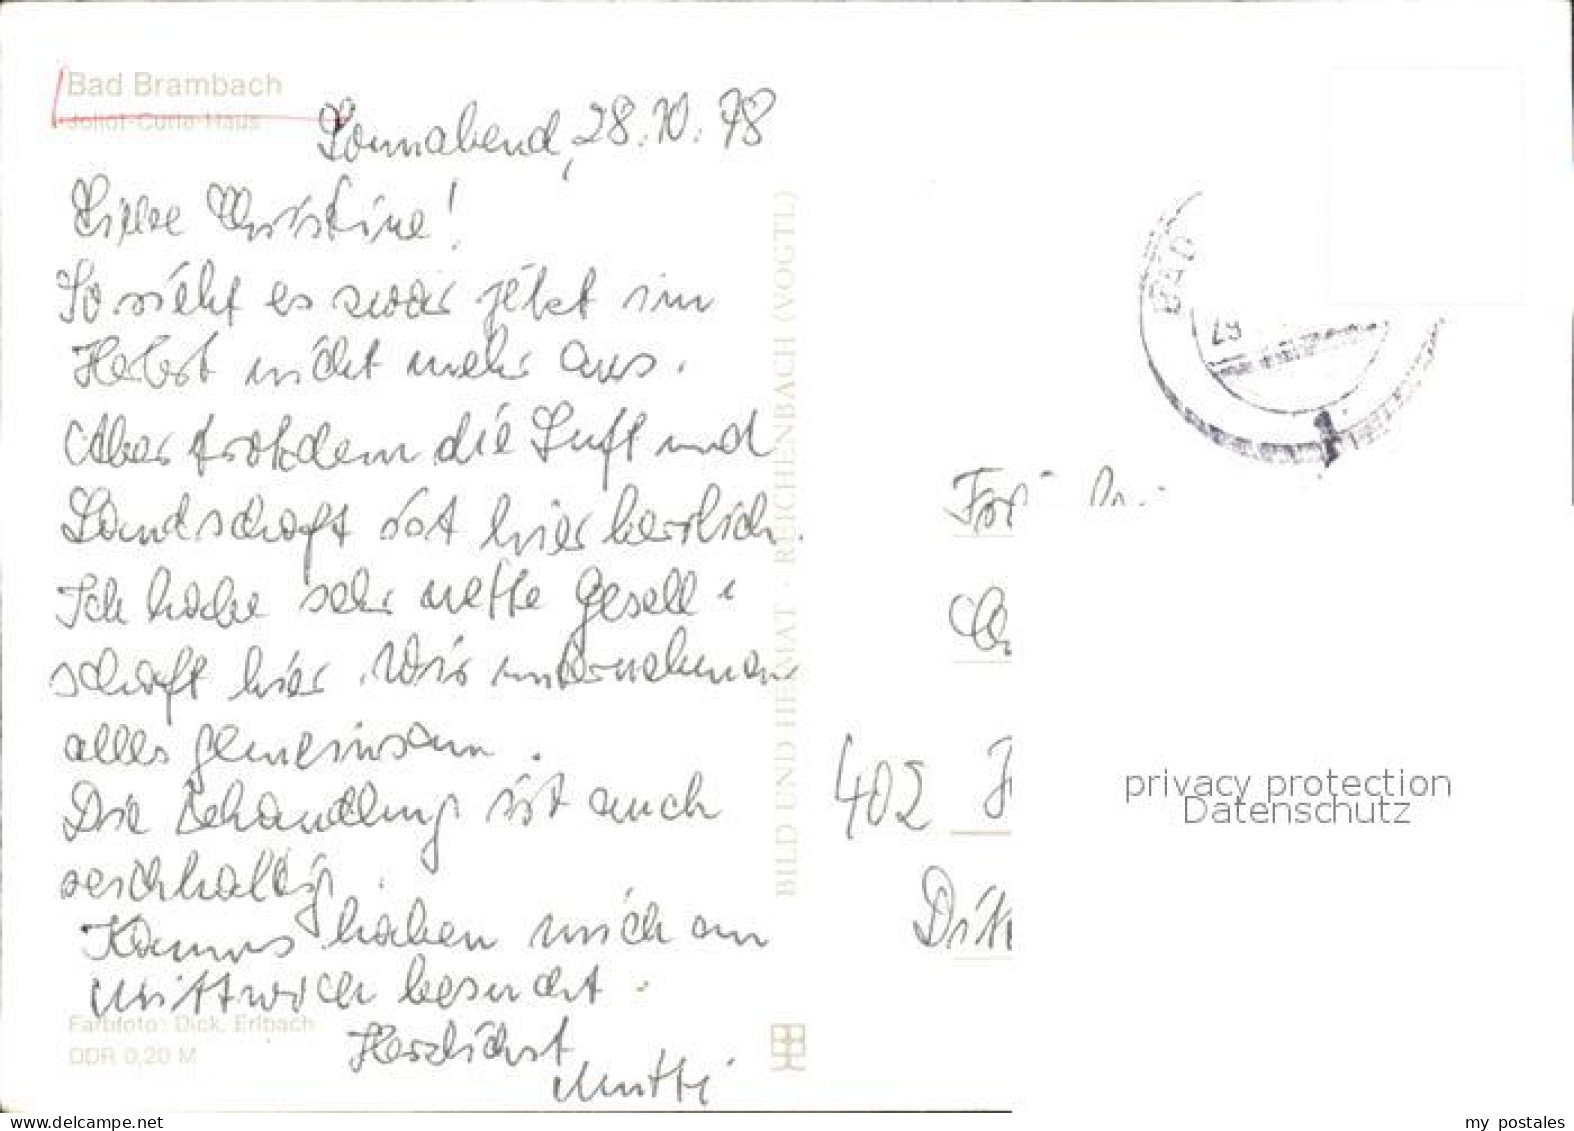 Bad Brambach
Joliot-Curie-Haus
Sonnabend, 28.10.78
Liebe Christine!
So sieht es zwar jetzt im
Herbst nicht mehr aus.
Aber trotzdem die Luft und
Landschaft ist hier herrlich.
Ich habe sehr nette Gesell-
schaft hier. Wir unternehmen
alles gemeinsam.
Die Behandlung ist auch
reichhaltig.
haben mich am
Mittwoch besucht.
Herzlichst
Mutti
Farbfoto: Dick, Erlbach
DDR 0,20 M
BILD UND HEIMAT · REICHENBACH (VOGTL)
BAD
29
402
privacy protection
Datenschutz
www.delcampe.net
my postales